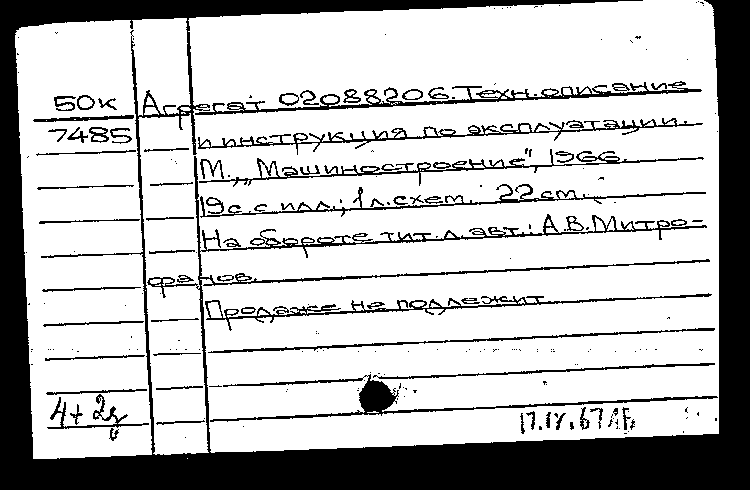 50к Агрегат 02088206. Техн. описание
7485 и инструкция по эксплуатации.
М., „Машиностроение", 1966.
19 с. с илл.; 1 л. схем. 22 см.
На обороте тит. л. авт.: А.В. Митро-
фанов.
Продаже не подлежит
4+2д
17.IV.67 АБ